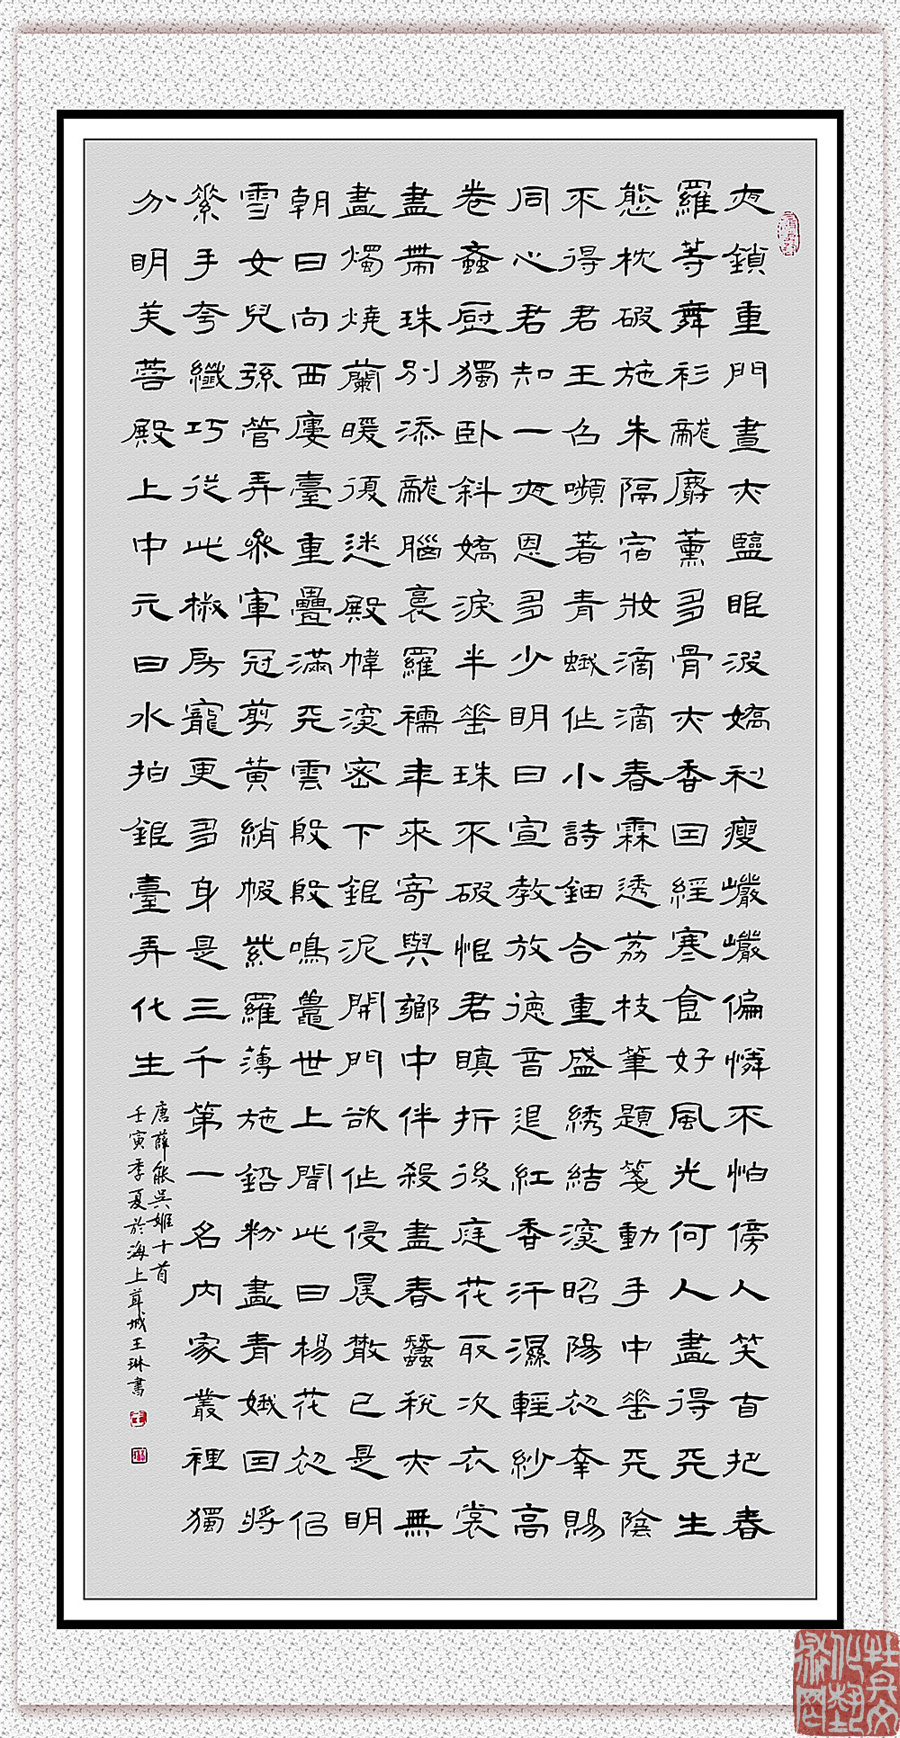 夜鎖重門晝亦監眼波嬌利瘦巖巖偏憐不怕傍人笑自把春
羅等舞衫龍麝薰多骨亦香因經寒食好風光何人盡得天生
態枕破施朱隔宿妝滴滴春霖透荔枝筆題箋動手中花天陰
不得君王召嚬著青蛾作小詩鈿合重盛綉結深昭陽初幸賜
同心君知一夜恩多少明日宣教放德音退紅香汗濕輕紗高
卷蚉厨獨卧斜嬌淚半花珠不破惟君瞋折後庭花取次衣裳
盡帶珠別添龍腦裛羅襦年來寄與鄉中伴殺盡春蠶稅亦無
盡燭燒蘭暖復迷殿幃深密下銀泥開門欲作侵晨散已是明
朝日向西廔臺重疊滿天雲殷殷鳴鼉世上聞此日楊花初似
雪女兒弦管弄參軍冠剪黃綃帔紫羅薄施鉛粉盡青娥因將
素手夸纖巧從此椒房寵更多身是三千第一名内家叢裡獨
分明芙蓉殿上中元日水拍銀臺弄化生
唐薛能吴姬十首
壬寅季夏於海上茸城王琳書